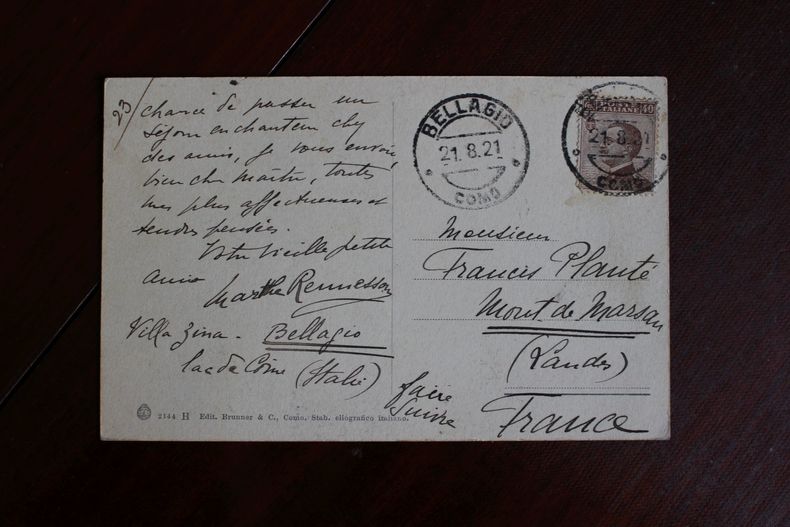 23
chance de passer un
séjour enchanteur chez
des amis, je vous envoie
bien cher maître, toutes
mes plus affectueuses et
tendres pensées.
Votre vieille petite
amie
Marthe Rennesson
Villa Zina - Bellagio
lac de Côme (Italie)
faire
suivre
2144 H Edit. Brunner & C., Como. Stab. eliografico italiano.
BELLAGIO
21.8.21
COMO
POSTE
ITALIANE
40
21.8.21
COMO
Monsieur
Francis Planté
Mont de Marsan
(Landes)
France